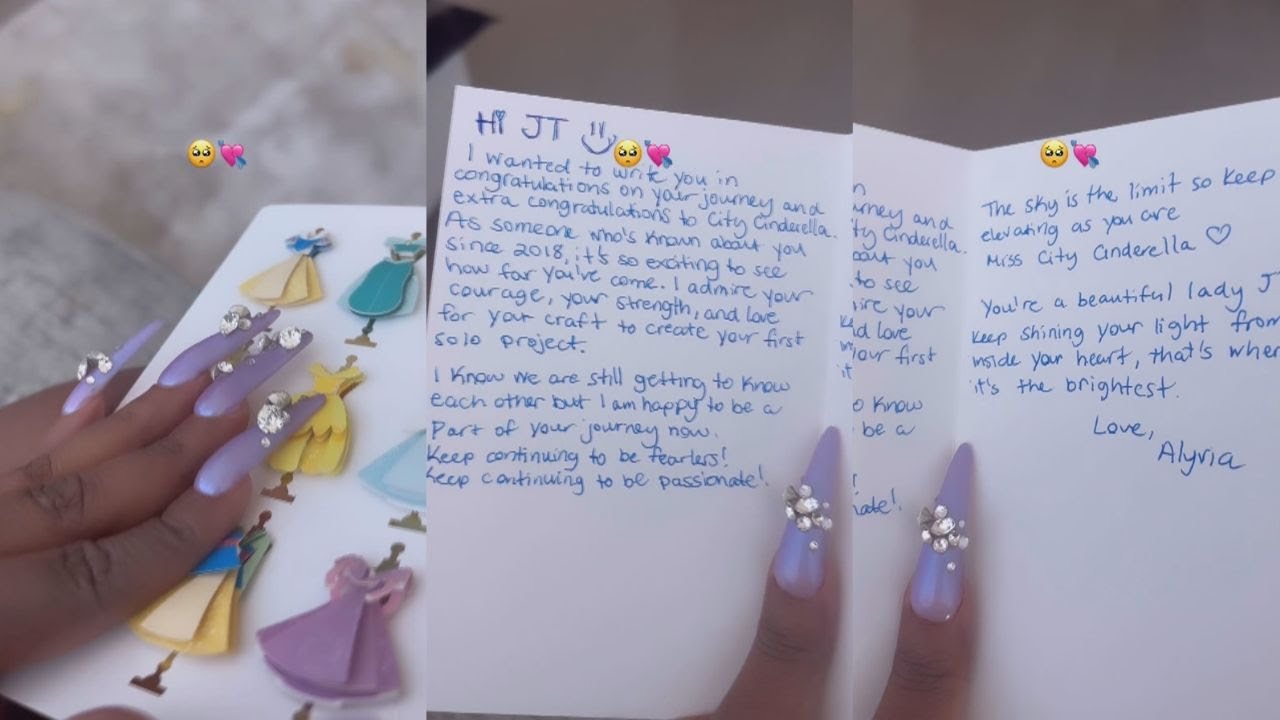 Hi JT
I wanted to write you in
congratulations on your journey and
extra congratulations to City Cinderella.
As someone who's known about you
since 2018, it's so exciting to see
how far you've come. I admire your
courage, your strength, and love
for your craft to create your first
solo project.
I know we are still getting to know
each other but I am happy to be a
part of your journey now.
Keep continuing to be fearless!
Keep continuing to be passionate!
n
urney and
ty Cinderella.
out you
to see
ire your
d love
our first
it
o know
be a
!
nate!
The sky is the limit so keep
elevating as you are
Miss City Cinderella ♡
You're a beautiful lady J
keep shining your light from
inside your heart, that's wher
it's the brightest.
Love,
Alyria